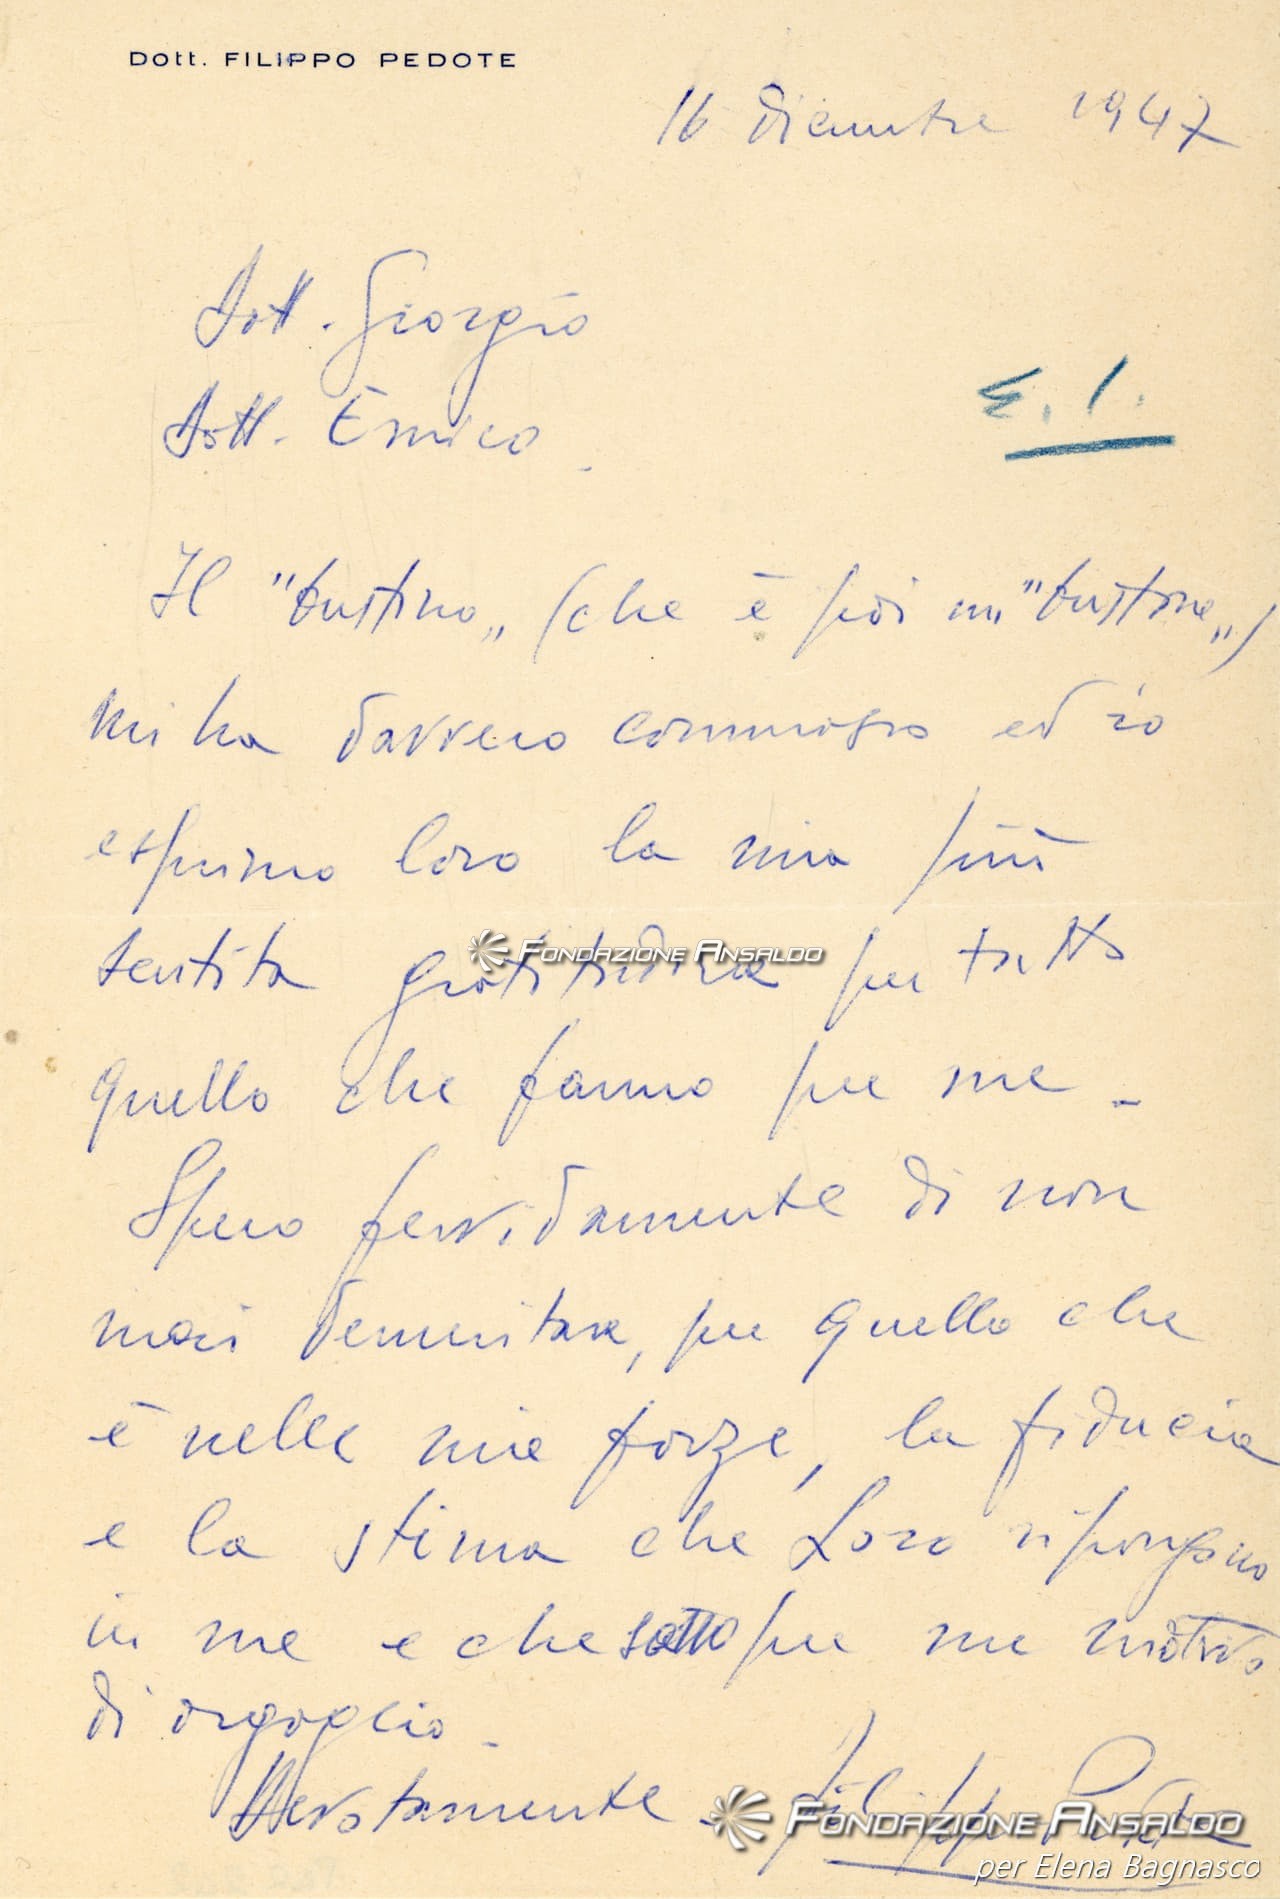 Dott. FILIPPO PEDOTE
16 dicembre 1947
Dott. Giorgio
Dott. Enrico
E. I.
Il "bustino„ (che è poi un "bustone„)
mi ha davvero commosso ed io
esprimo loro la mia più
sentita gratitudine per tutto
quello che fanno per me.
Spero fervidamente di non
mai demeritare, per quello che
è nelle mie forze, la fiducia
e la stima che Loro ripongono
in me e che sono per me motivo
di orgoglio.
Devotamente Filippo Pedote
FONDAZIONE ANSALDO
FONDAZIONE ANSALDO
per Elena Bagnasco